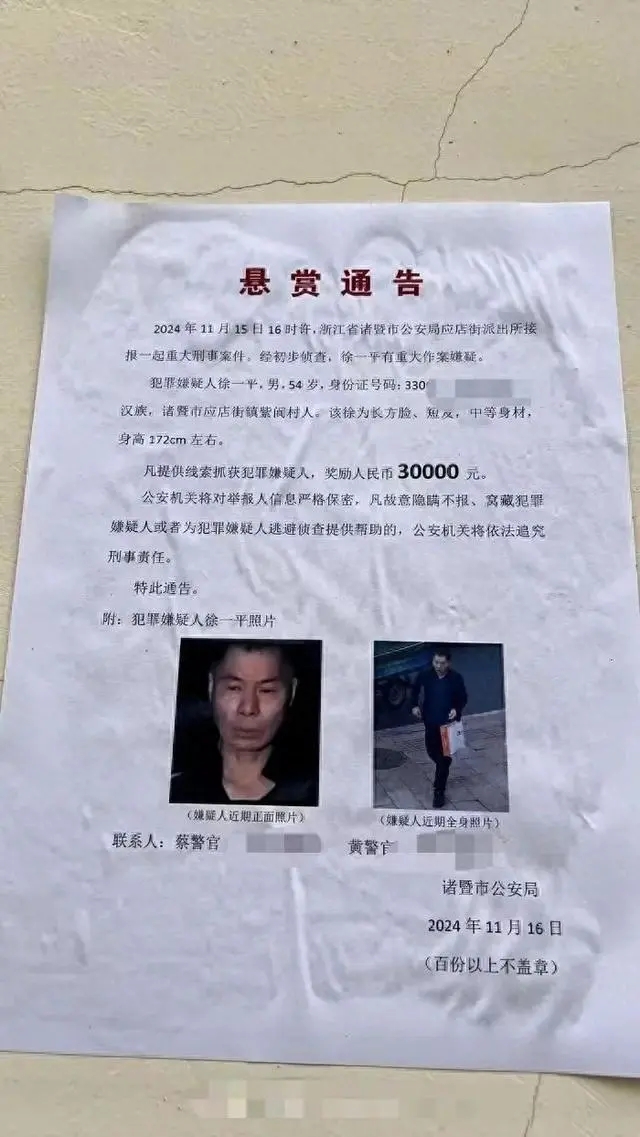 悬赏通告
2024年11月15日16时许,浙江省诸暨市公安局应店街派出所接
报一起重大刑事案件。经初步侦查，徐一平有重大作案嫌疑。
犯罪嫌疑人徐一平,男,54岁,身份证号码:330
汉族，诸暨市应店街镇紫阆村人。该徐为长方脸、短发，中等身材，
身高172cm左右。
凡提供线索抓获犯罪嫌疑人，奖励人民币30000元。
公安机关将对举报人信息严格保密，凡故意隐瞒不报、窝藏犯罪
嫌疑人或者为犯罪嫌疑人逃避侦查提供帮助的，公安机关将依法追究
刑事责任。
特此通告。
附：犯罪嫌疑人徐一平照片
（嫌疑人近期正面照片）
（嫌疑人近期全身照片）
联系人：蔡警官
黄警官
诸暨市公安局
2024年11月16日
（百份以上不盖章）